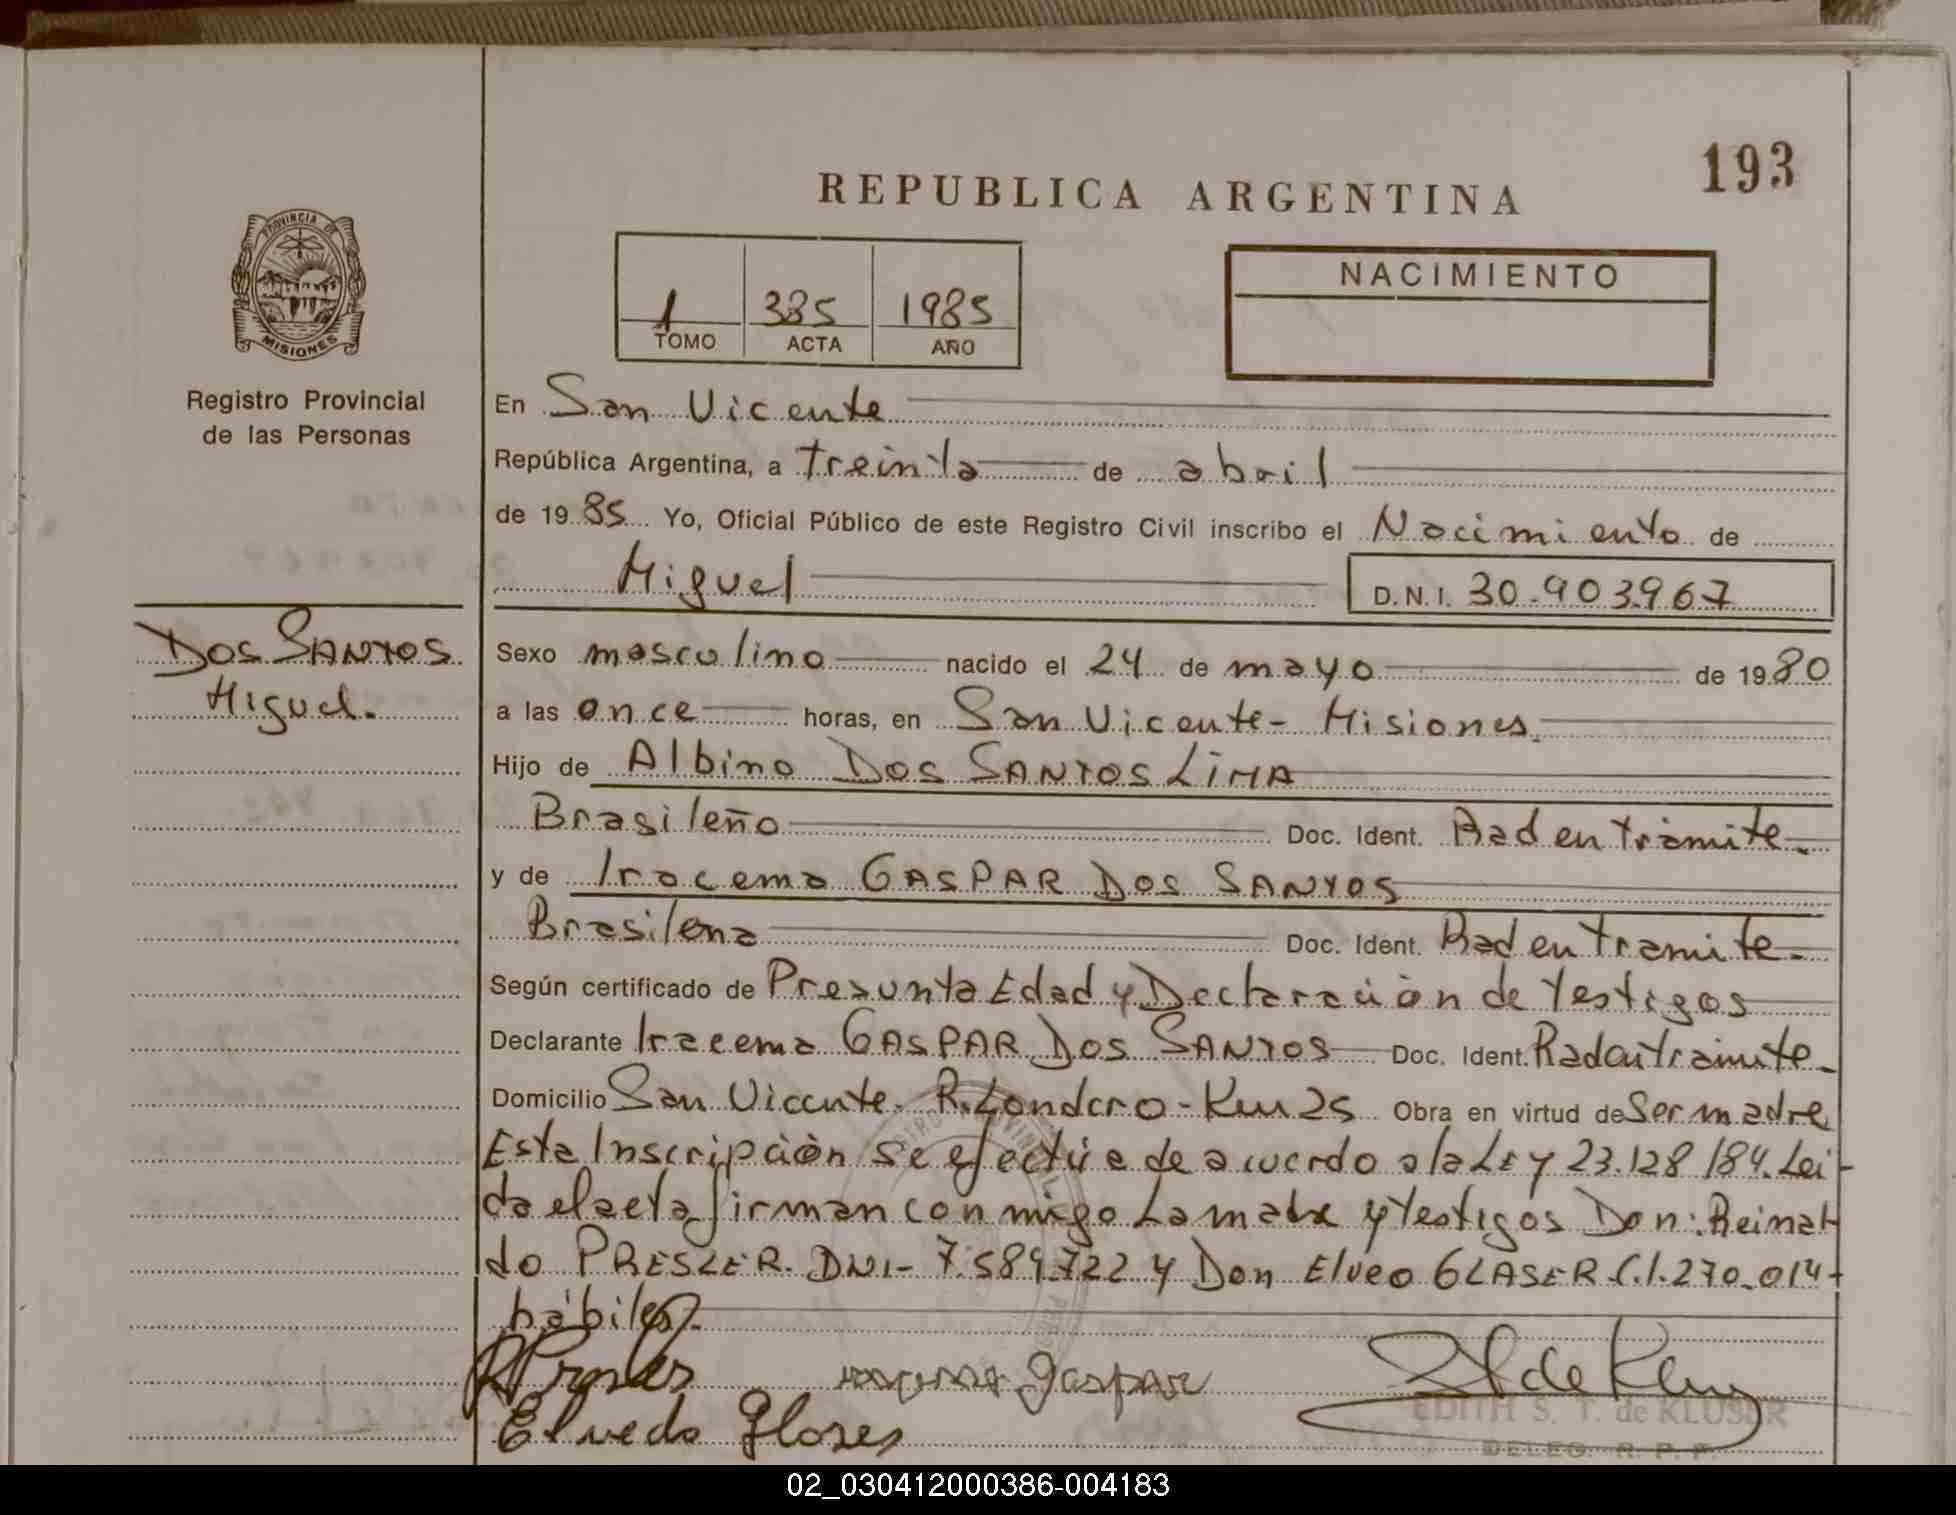 193
REPUBLICA ARGENTINA
PROVINCIA DE
MISIONES
1 385 1985
TOMO ACTA AÑO
NACIMIENTO
Registro Provincial
de las Personas
En San Vicente
República Argentina, a treinta de abril
de 1985 Yo, Oficial Público de este Registro Civil inscribo el Nacimiento de
Miguel D.N.I. 30.903.967
DOS SANTOS
Miguel.
Sexo masculino nacido el 24 de mayo de 1980
a las once horas, en San Vicente - Misiones.
Hijo de Albino DOS SANTOS LIMA
Brasileño Doc. Ident. Rad en trámite.
y de Iracema GASPAR DOS SANTOS
Brasilena Doc. Ident. Rad en tramite.
Según certificado de Presunta Edad y Declaración de Testigos
Declarante Iracema GASPAR DOS SANTOS Doc. Ident. Rad en trámite.
Domicilio San Vicente. R. Londero - Km 25 Obra en virtud de Ser madre
Esta Inscripción se efectúa de acuerdo a la Ley 23.128/84. Lei-
da el acta firman conmigo La madre y testigos Don: Reinal-
do PRESLER. DNI- 7.589.722 y Don Elveo GLASER C.I. 270.014-
hábiles.
gaspar
EDITH S. T. de KLUSER
DELEG. R. P. P.
02_030412000386-004183